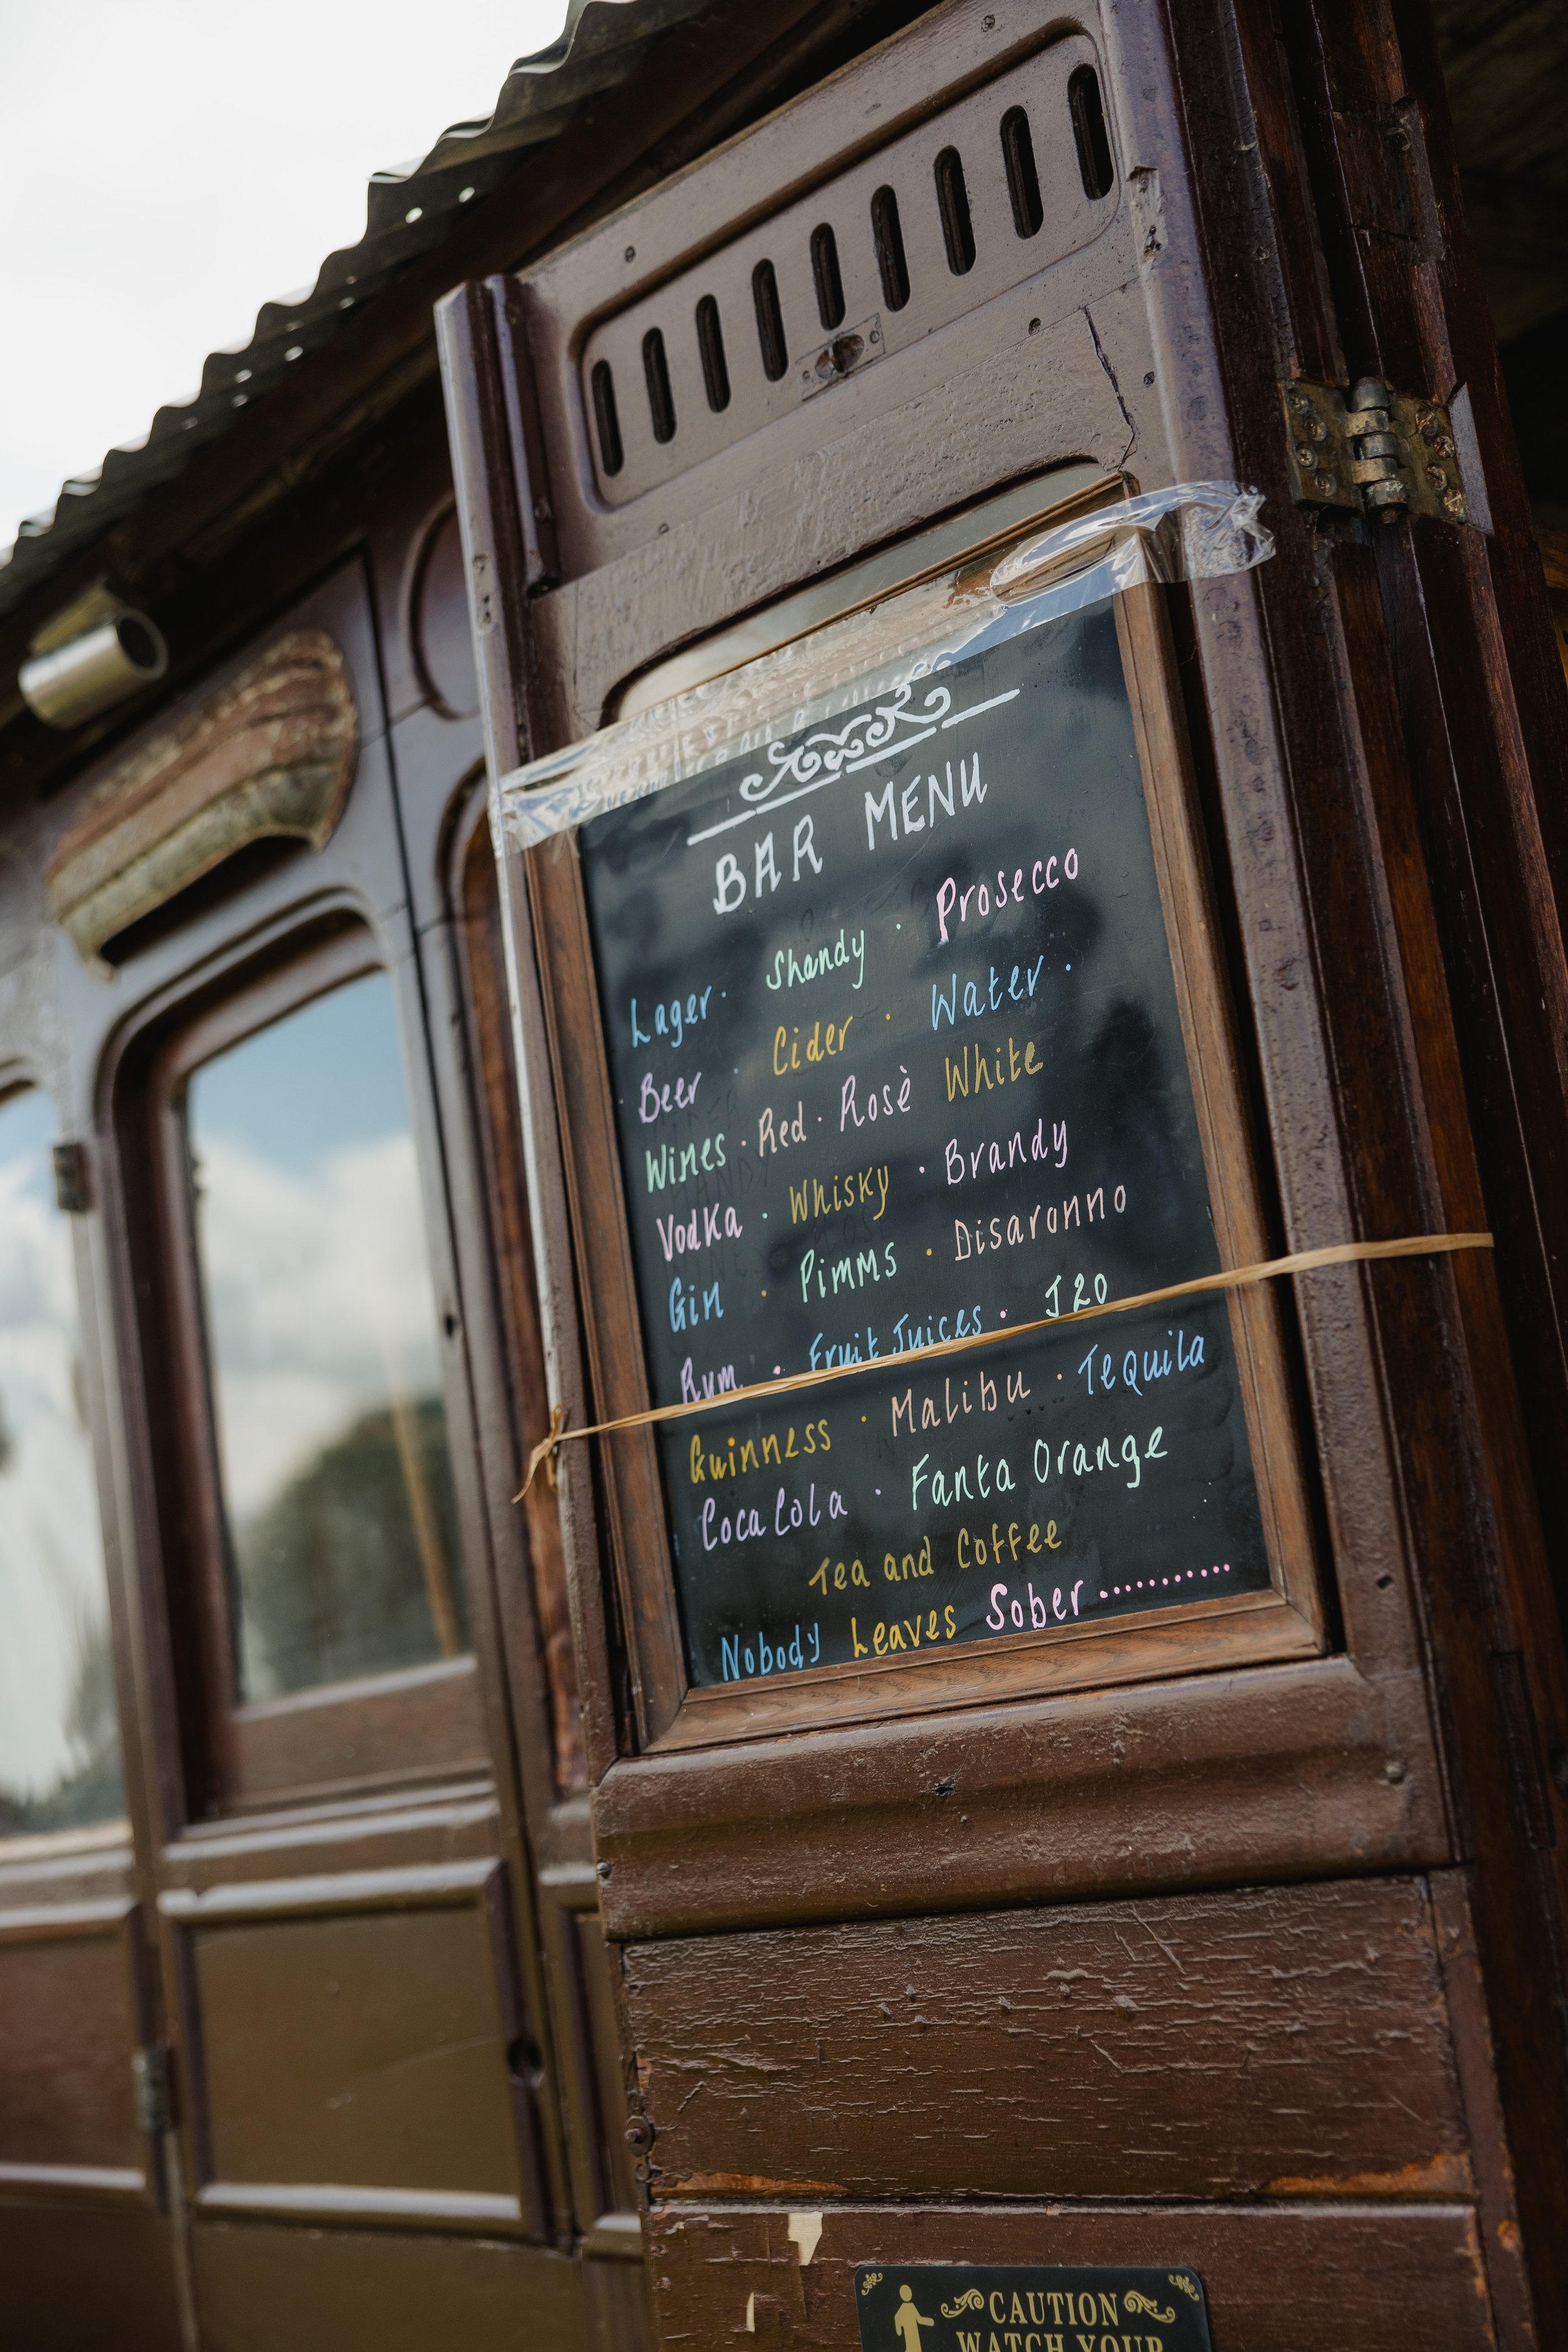 BAR MENU
Lager · Shandy · Prosecco
Beer · Cider · Water ·
Wines · Red · Rosè White
Vodka · Whisky · Brandy
Gin · Pimms · Disaronno
Rum · Fruit Juices · J20
Guinness · Malibu · Tequila
Coca Cola · Fanta Orange
Tea and Coffee
Nobody Leaves Sober...........
CAUTION
WATCH YOUR